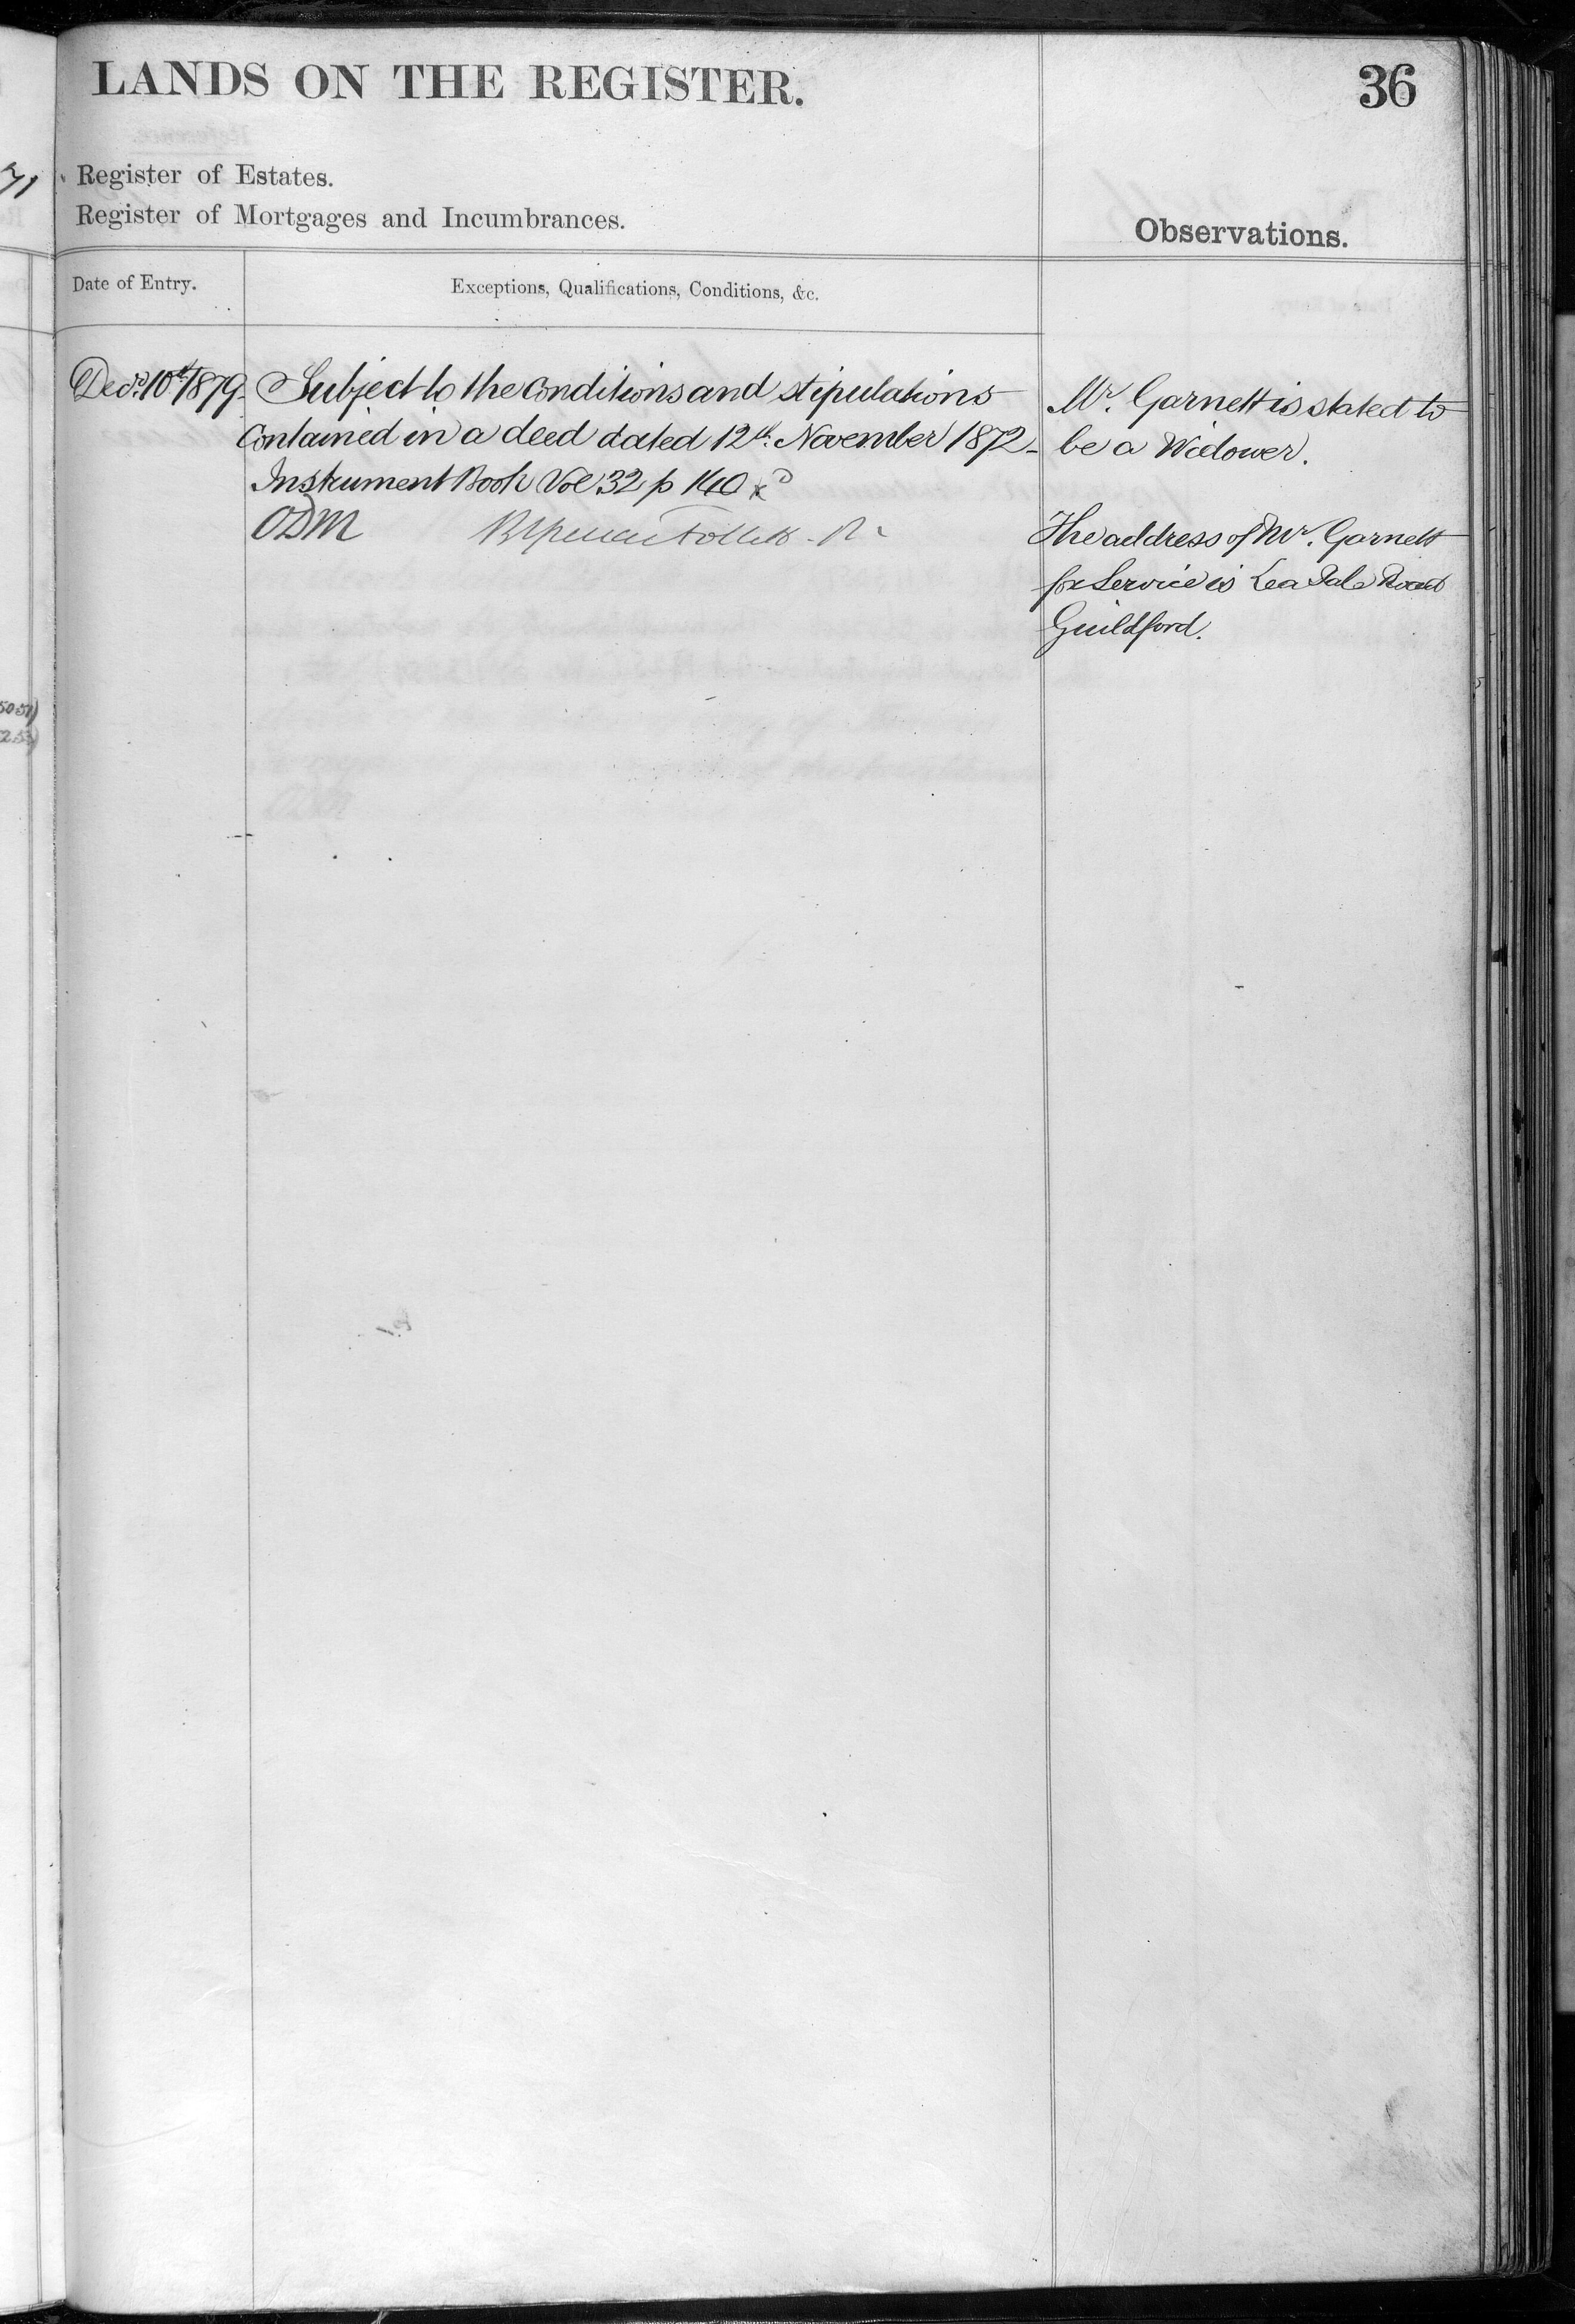 LANDS ON THE REGISTER.
36
Register of Estates.
Register of Mortgages and Incumbrances.
Observations.
Date of Entry.
Exceptions, Qualifications, Conditions, &c.
Decr. 10th 1879.
Subject to the Conditions and stipulations
Contained in a deed dated 12th. November 1872
Instrument Book Vol 32 p 140
ODM
Follett
Mr. Garnett is stated to
be a Widower.
The address of Mr. Garnett
for Service is Lea Pale Road
Guildford.